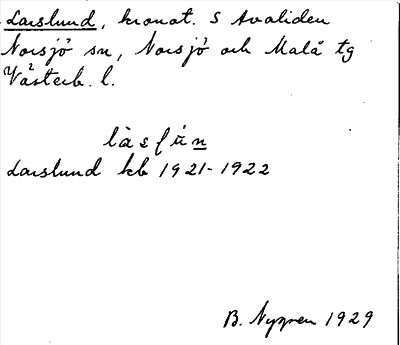 Larslund, kronot. S Avaliden
Norsjö sn, Norsjö och Malå tg
Västerb. l.
làsſùn
Larslund kb 1921-1922
B. Nygren 1929